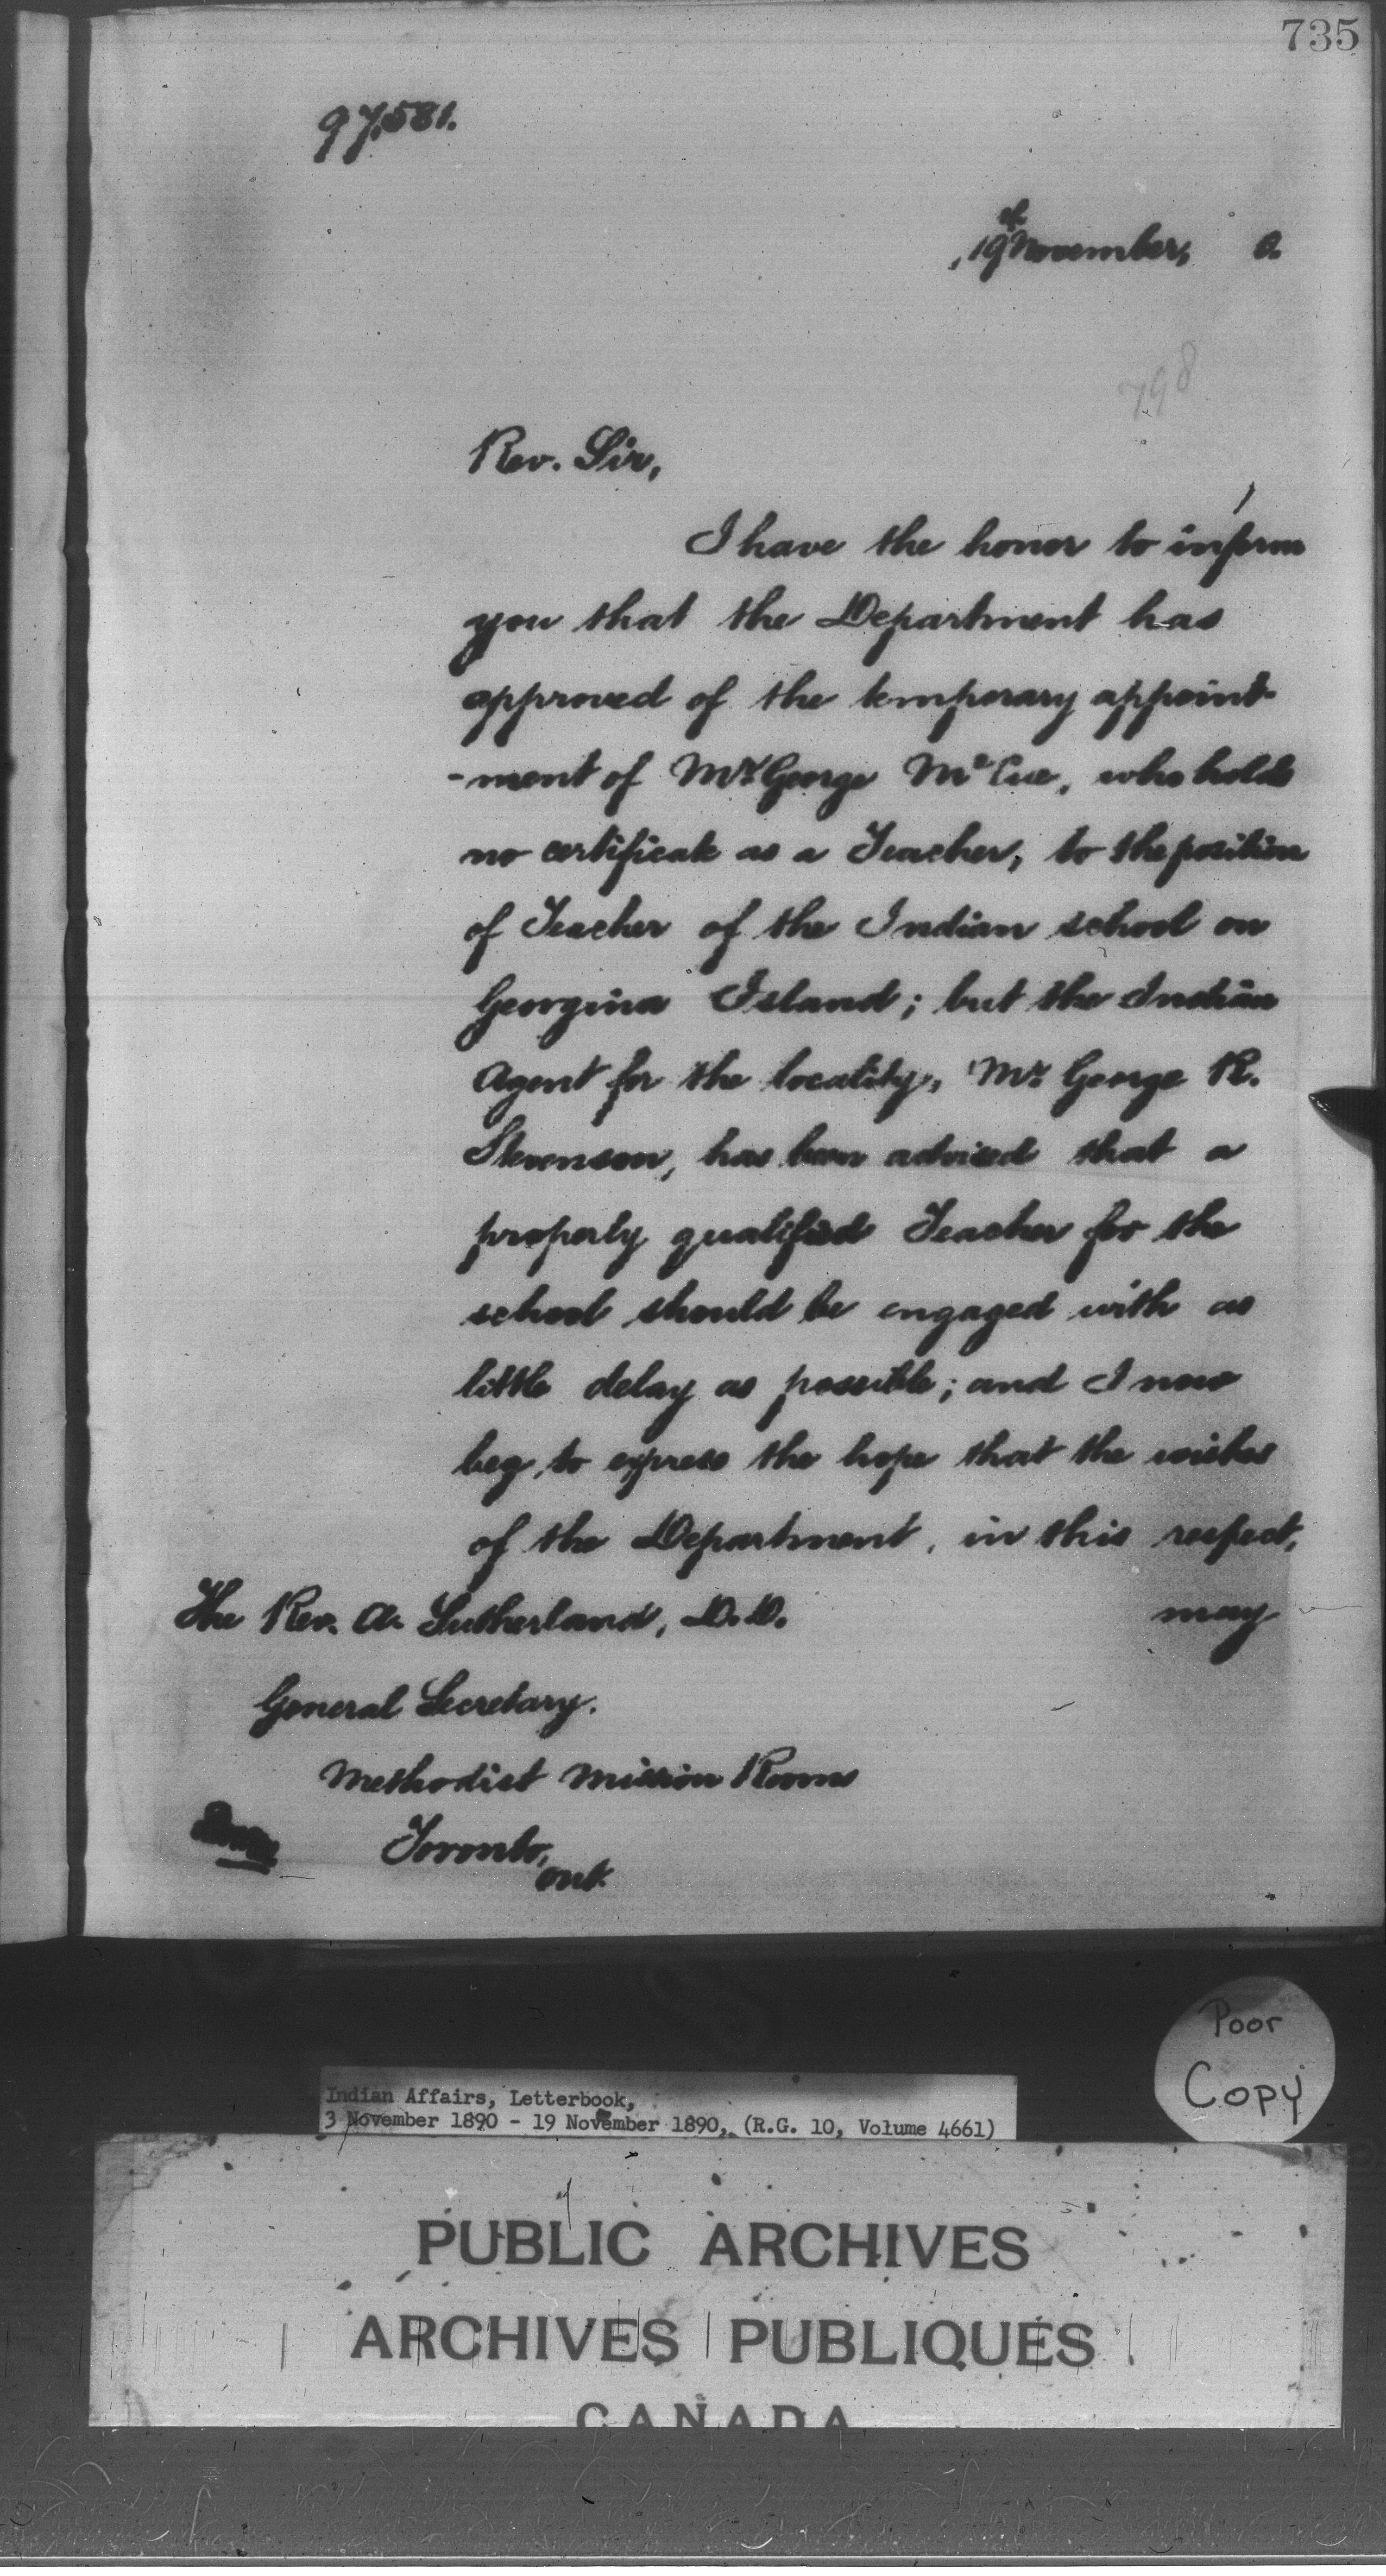 735
97,581.
19th November, 0.
798
Rev. Sir,
I have the honor to inform
you that the Department has
approved of the temporary appoint-
-ment of Mr. George McCue, who holds
no certificate as a Teacher, to the position
of Teacher of the Indian school on
Georgina Island; but the Indian
Agent for the locality, Mr. George R.
Stevenson, has been advised that a
properly qualified Teacher for the
school should be engaged with as
little delay as possible; and I now
beg to express the hope that the wishes
of the Department, in this respect,
may
The Rev. A. Sutherland, D.D.
General Secretary.
Methodist Mission Rooms
Toronto,
Ont.
Poor
Copy
Indian Affairs, Letterbook,
3 November 1890 - 19 November 1890, (R.G. 10, Volume 4661)
PUBLIC ARCHIVES
ARCHIVES PUBLIQUES
CANADA